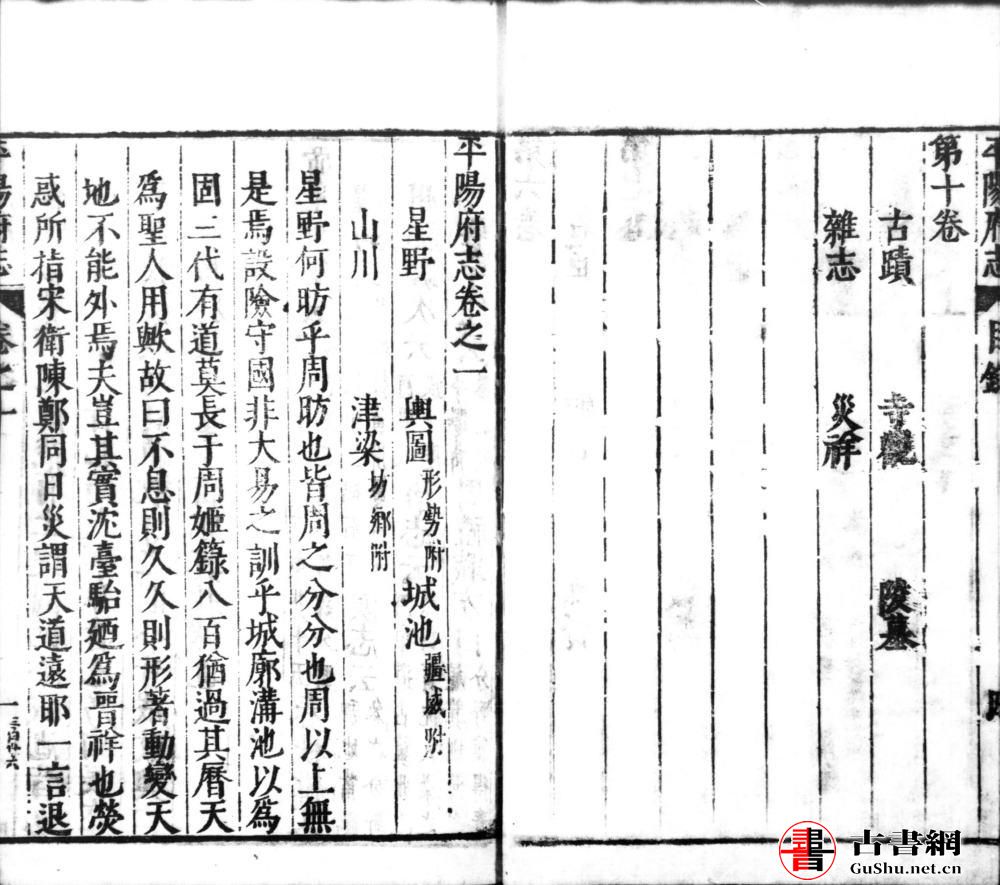 平陽府志 目錄
第十卷
古蹟 寺觀 陵墓
雜志 災祥
平陽府志卷之一
星野 輿圖形勢附 城池疆域附
山川 津梁坊鄉附
星野何昉乎周昉也皆周之分分也周以上無
是焉設險守國非大易之訓乎城廓溝池以爲
固三代有道莫長于周姬籙八百猶過其曆天
爲聖人用歟故曰不息則久久則形著動變天
地不能外焉夫豈其實沈臺駘廼爲晉祥也熒
惑所指宋衛陳鄭同日災謂天道遠耶一言退
平陽府志 卷之一 一 三百卅六
古書網
GuShu.net.cn
書